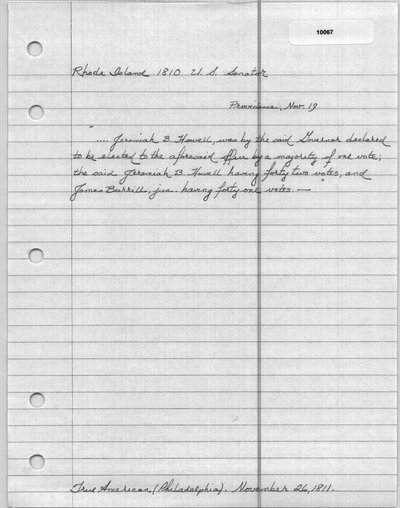 10067
Rhode Island 1810 U. S. Senator
Providence, Nov. 19
".... Jeremiah B. Howell, was by the said Governor declared
to be elected to the aforesaid office by a majority of one vote;
the said Jeremiah B. Howell having forty two votes, and
James Burrill, jun. having forty one votes. —"
True American (Philadelphia). November 26, 1811.